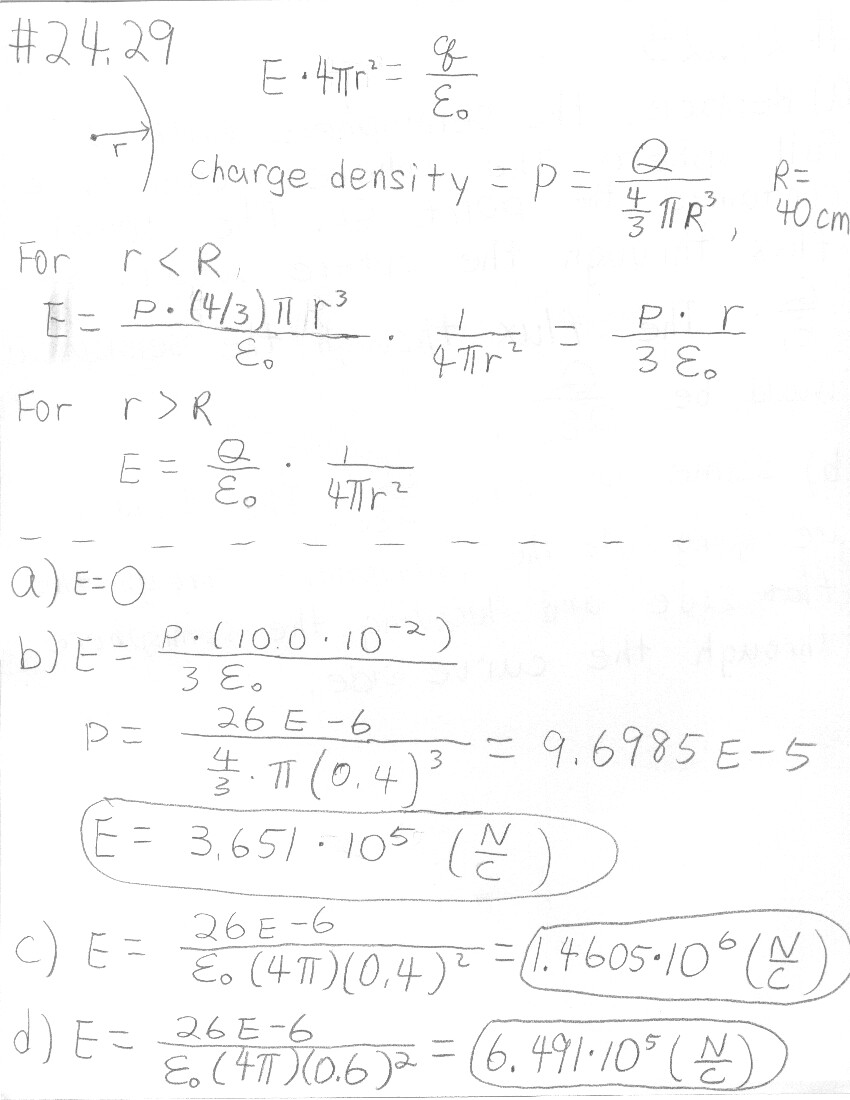 #24.29
E · 4πr² = q/ε₀
r
charge density = ρ = Q / (4/3 πR³), R = 40 cm
For r < R,
E = ρ · (4/3) π r³ / ε₀ · 1 / 4πr² = ρ · r / 3 ε₀
For r > R
E = Q/ε₀ · 1 / 4πr²
a) E=0
b) E = ρ · (10.0 · 10⁻²) / 3 ε₀
ρ = 26 E -6 / (4/3 · π (0.4)³) = 9.6985 E-5
E = 3.651 · 10⁵ (N/C)
c) E = 26 E -6 / ε₀ (4π)(0.4)² = 1.4605 · 10⁶ (N/C)
d) E = 26 E -6 / ε₀ (4π)(0.6)² = 6.491 · 10⁵ (N/C)